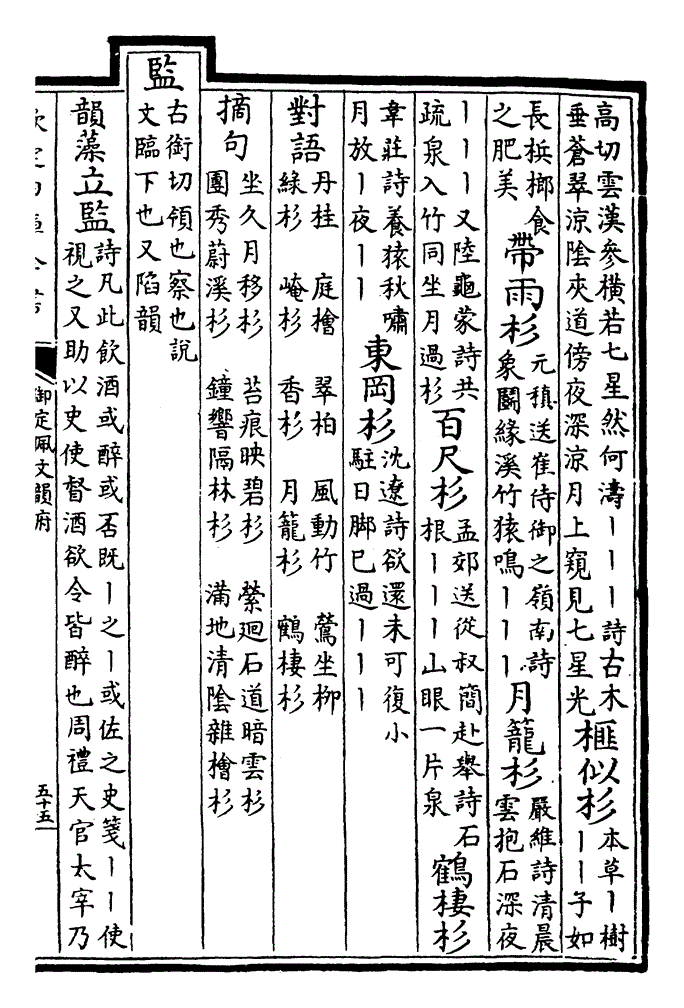 高切雲漢參橫若七星然何濤丨丨丨詩古木
垂蒼翠涼陰夾道傍夜深涼月上窺見七星光
榧似杉
本草丨樹
丨丨子如
長檳榔食
之肥美
帶雨杉
元稹送崔侍御之嶺南詩
象鬭緣溪竹猿鳴丨丨丨
月籠杉
嚴維詩清晨
雲抱石深夜
丨丨丨又陸龜蒙詩共
疏泉入竹同坐月過杉
百尺杉
孟郊送從叔簡赴舉詩石
根丨丨丨山眼一片泉
鶴棲杉
韋莊詩養猿秋嘯
月放丨夜丨丨
東岡杉
沈遼詩欲還未可復小
駐日脚已過丨丨丨
對語
丹桂 庭檜 翠柏 風動竹 鶯坐柳
綠杉 崦杉 香杉 月籠杉 鶴棲杉
摘句
坐久月移杉 苔痕映碧杉 縈廻石道暗雲杉
團秀蔚溪杉 鐘響隔林杉 滿地清陰雜檜杉
監
古銜切領也察也說
文臨下也又陷韻
韻藻
立監
詩凡此飲酒或醉或否既丨之丨或佐之史箋丨丨使
視之又助以史使督酒欲令皆醉也周禮天官太宰乃
御定佩文韻府
五十五